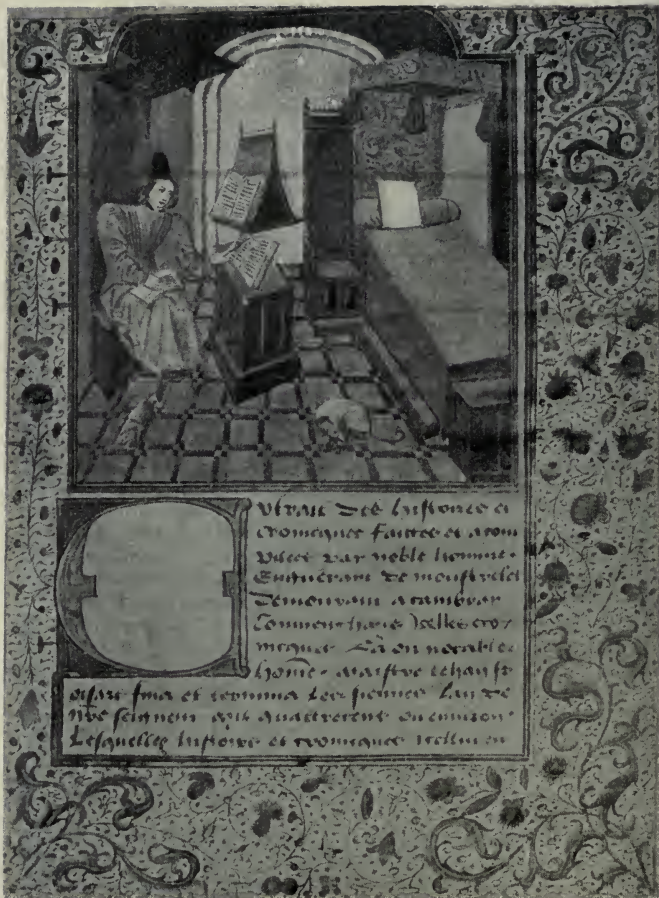 Extrait des histoires et
cronicques faictes et acom
pilees par noble homme
Enguéram de monstrelet
Demourant a cambray
Commenchans icelles cro
nicques La ou notable
home maistre Jehan fr
oisart fina et termina les siennes Lan de
nre seigneur mil quattrecens ou environ
Lesquelles histoires et cronicques icellui en